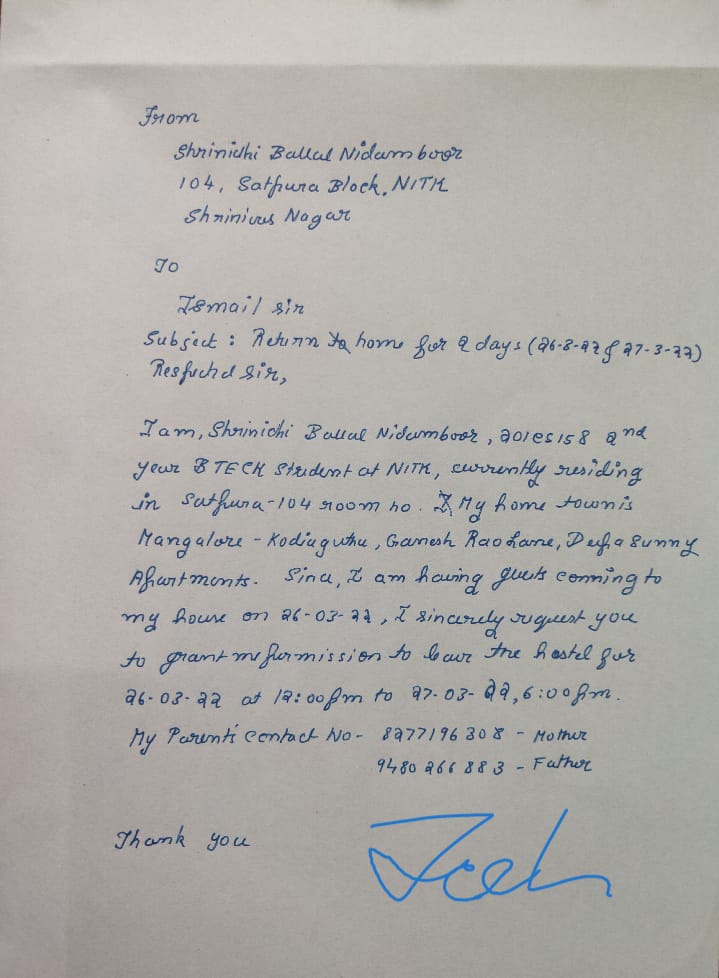 From
Shrinidhi Ballal Nidamboor
104, Satpura Block, NITK
Shrinivas Nagar
To
Ismail sir
Subject : Return to home for 2 days (26-3-22 & 27-3-22)
Respected Sir,
I am, Shrinidhi Ballal Nidamboor, 201ES158 2nd
year BTECK Student at NITK, currently residing
in Satpura-104 room no. My home town is
Mangalore - Kodiaguthu, Ganesh Rao Lane, Deepa Sunny
Apartments. Since, I am having guests comming to
my house on 26-03-22, I sincerely request you
to grant me permission to leave the hostel for
26-03-22 at 12:00pm to 27-03-22, 6:00pm.
My Parent's contact No- 8277196308 - Mother
9480266883 - Father
Thank you